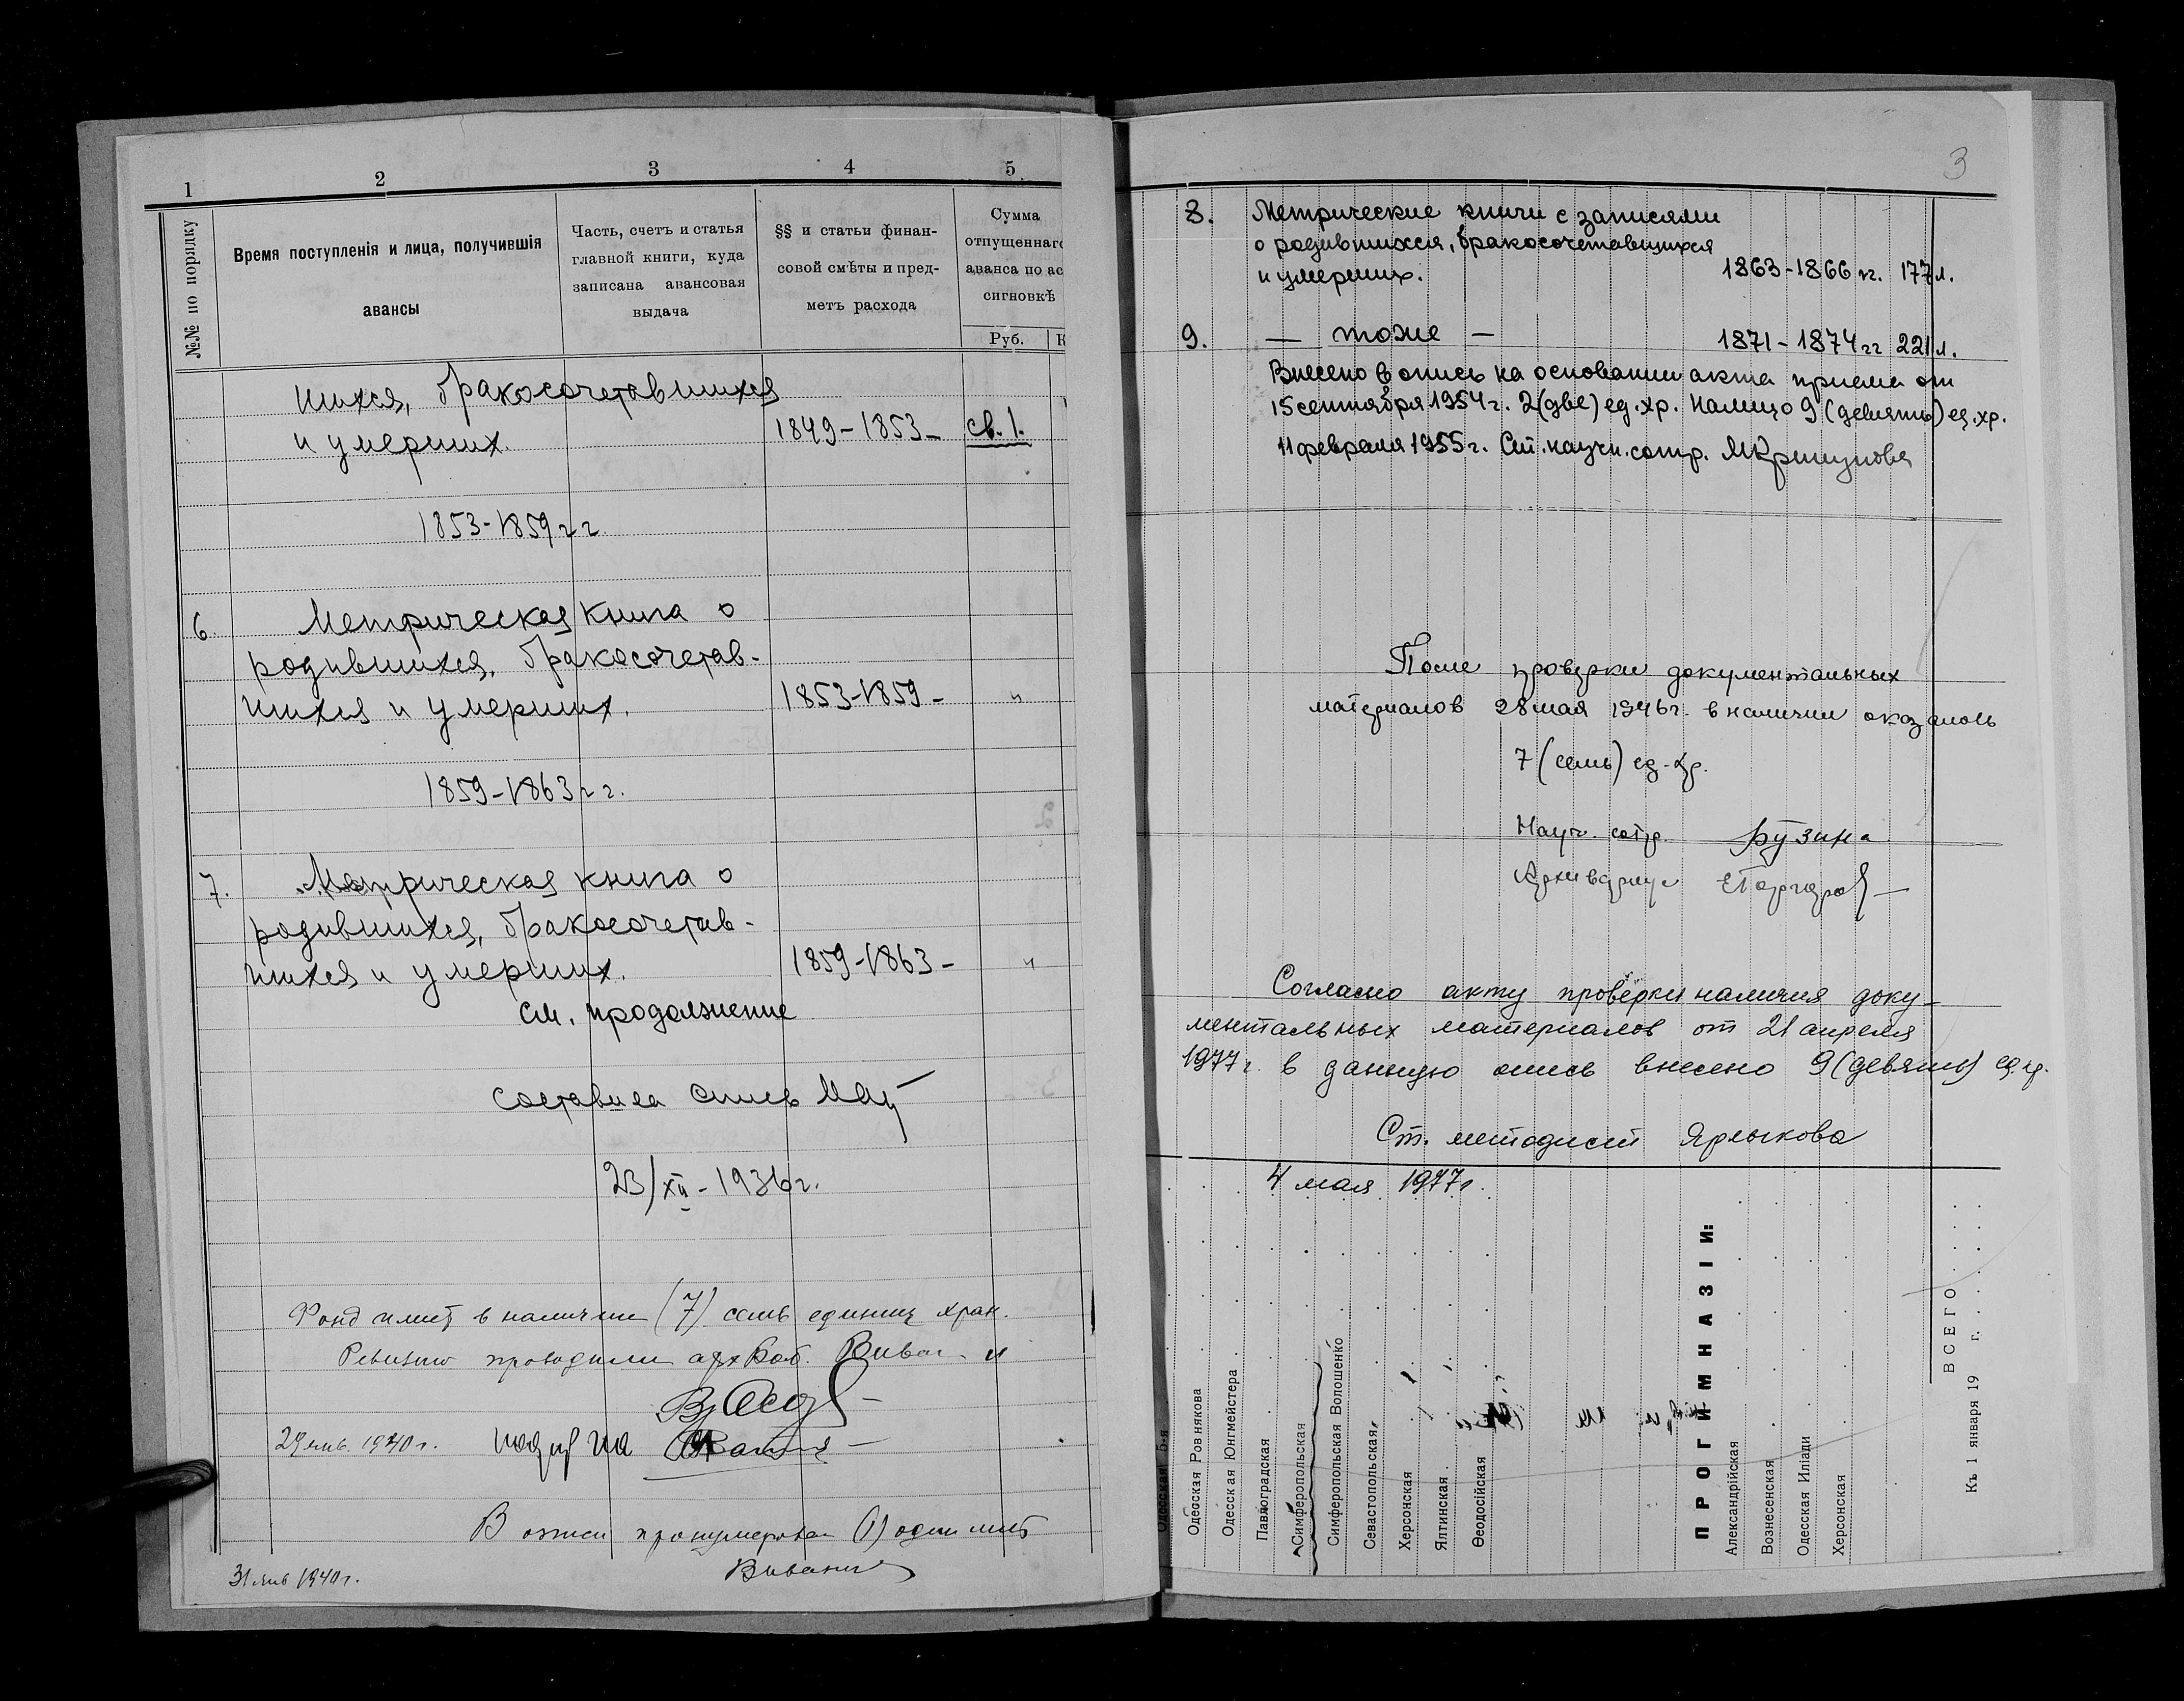 1
2
3
4
5
№№ по порядку
Время поступленія и лица, получившія
авансы
Часть, счетъ и статья
главной книги, куда
записана авансовая
выдача
§§ и статьи финан-
совой смѣты и пред-
метъ расхода
Сумма
отпущеннаго
аванса по ас
сигновкѣ
Руб.
К
шихся, бракосочетавшихся
и умерших. 1849-1853- св. 1.
1853-1859 гг.
6. Метрическая книга о
родившихся, бракосочетав-
шихся и умерших. 1853-1859- "
1859-1863 гг.
7. Метрическая книга о
родившихся, бракосочетав-
шихся и умерших. 1859-1863- "
см. продолжение
Составила опись
23/XII-1936г.
Фонд имеет в наличии (7) семь единиц хран.
Ревизию проводили
29 янв. 1940г.
В описи пронумерован (1) один лист
31 янв 1940г.
3
8. Метрические книги с записями
о родившихся, бракосочетавшихся
и умерших. 1863-1866 гг. 177 л.
9. — тоже — 1871-1874 гг 221 л.
Внесено в опись на основании акта приема от
15 сентября 1954г. 2 (две) ед.хр. Налицо 9 (девять) ед.хр.
11 февраля 1955г. Ст. научн. сотр.
После проверки документальных
материалов 28 мая 1946г. в наличии оказалось
7 (семь) ед.хр.
Науч. сотр. Бузина
Архивариус
Согласно акту проверки наличия доку-
ментальных материалов от 21 апреля
1977 г. в данную опись внесено 9 (девять) ед.хр.
Ст. методист Ярлыкова
4 мая 1977г.
Одесская 5-я
Одесская Ровнякова
Одесская Юнгмейстера
Павлоградская
Симферопольская
Симферопольская Волошенко
Севастопольская
Херсонская
Ялтинская
Ѳеодосійская
ПРОГИМНАЗІИ:
Александрійская
Вознесенская
Одесская Иліади
Херсонская
ВСЕГО
Къ 1 января 19 г.